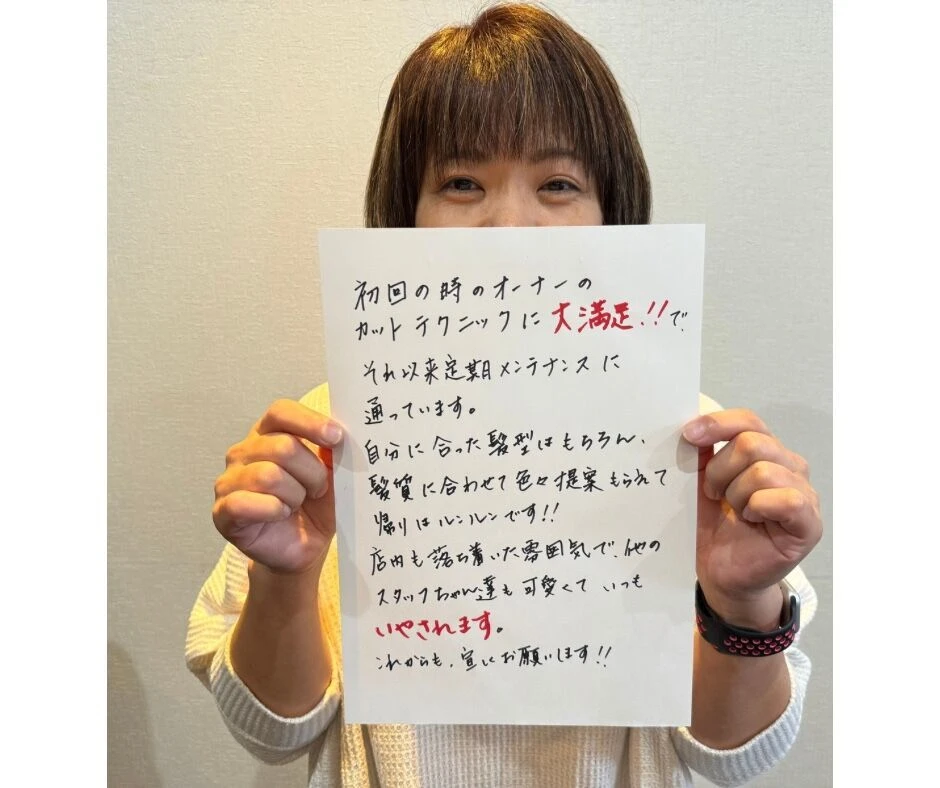 初回の時のオーナーの
カットテクニックに大満足!!で、
それ以来定期メンテナンスに
通っています。
自分に合った髪型はもちろん、
髪質に合わせて色々提案もらえて
帰りはルンルンです!!
店内も落ち着いた雰囲気で、他の
スタッフちゃん達も可愛くていつも
いやされます。
これからも、宜しくお願いします!!